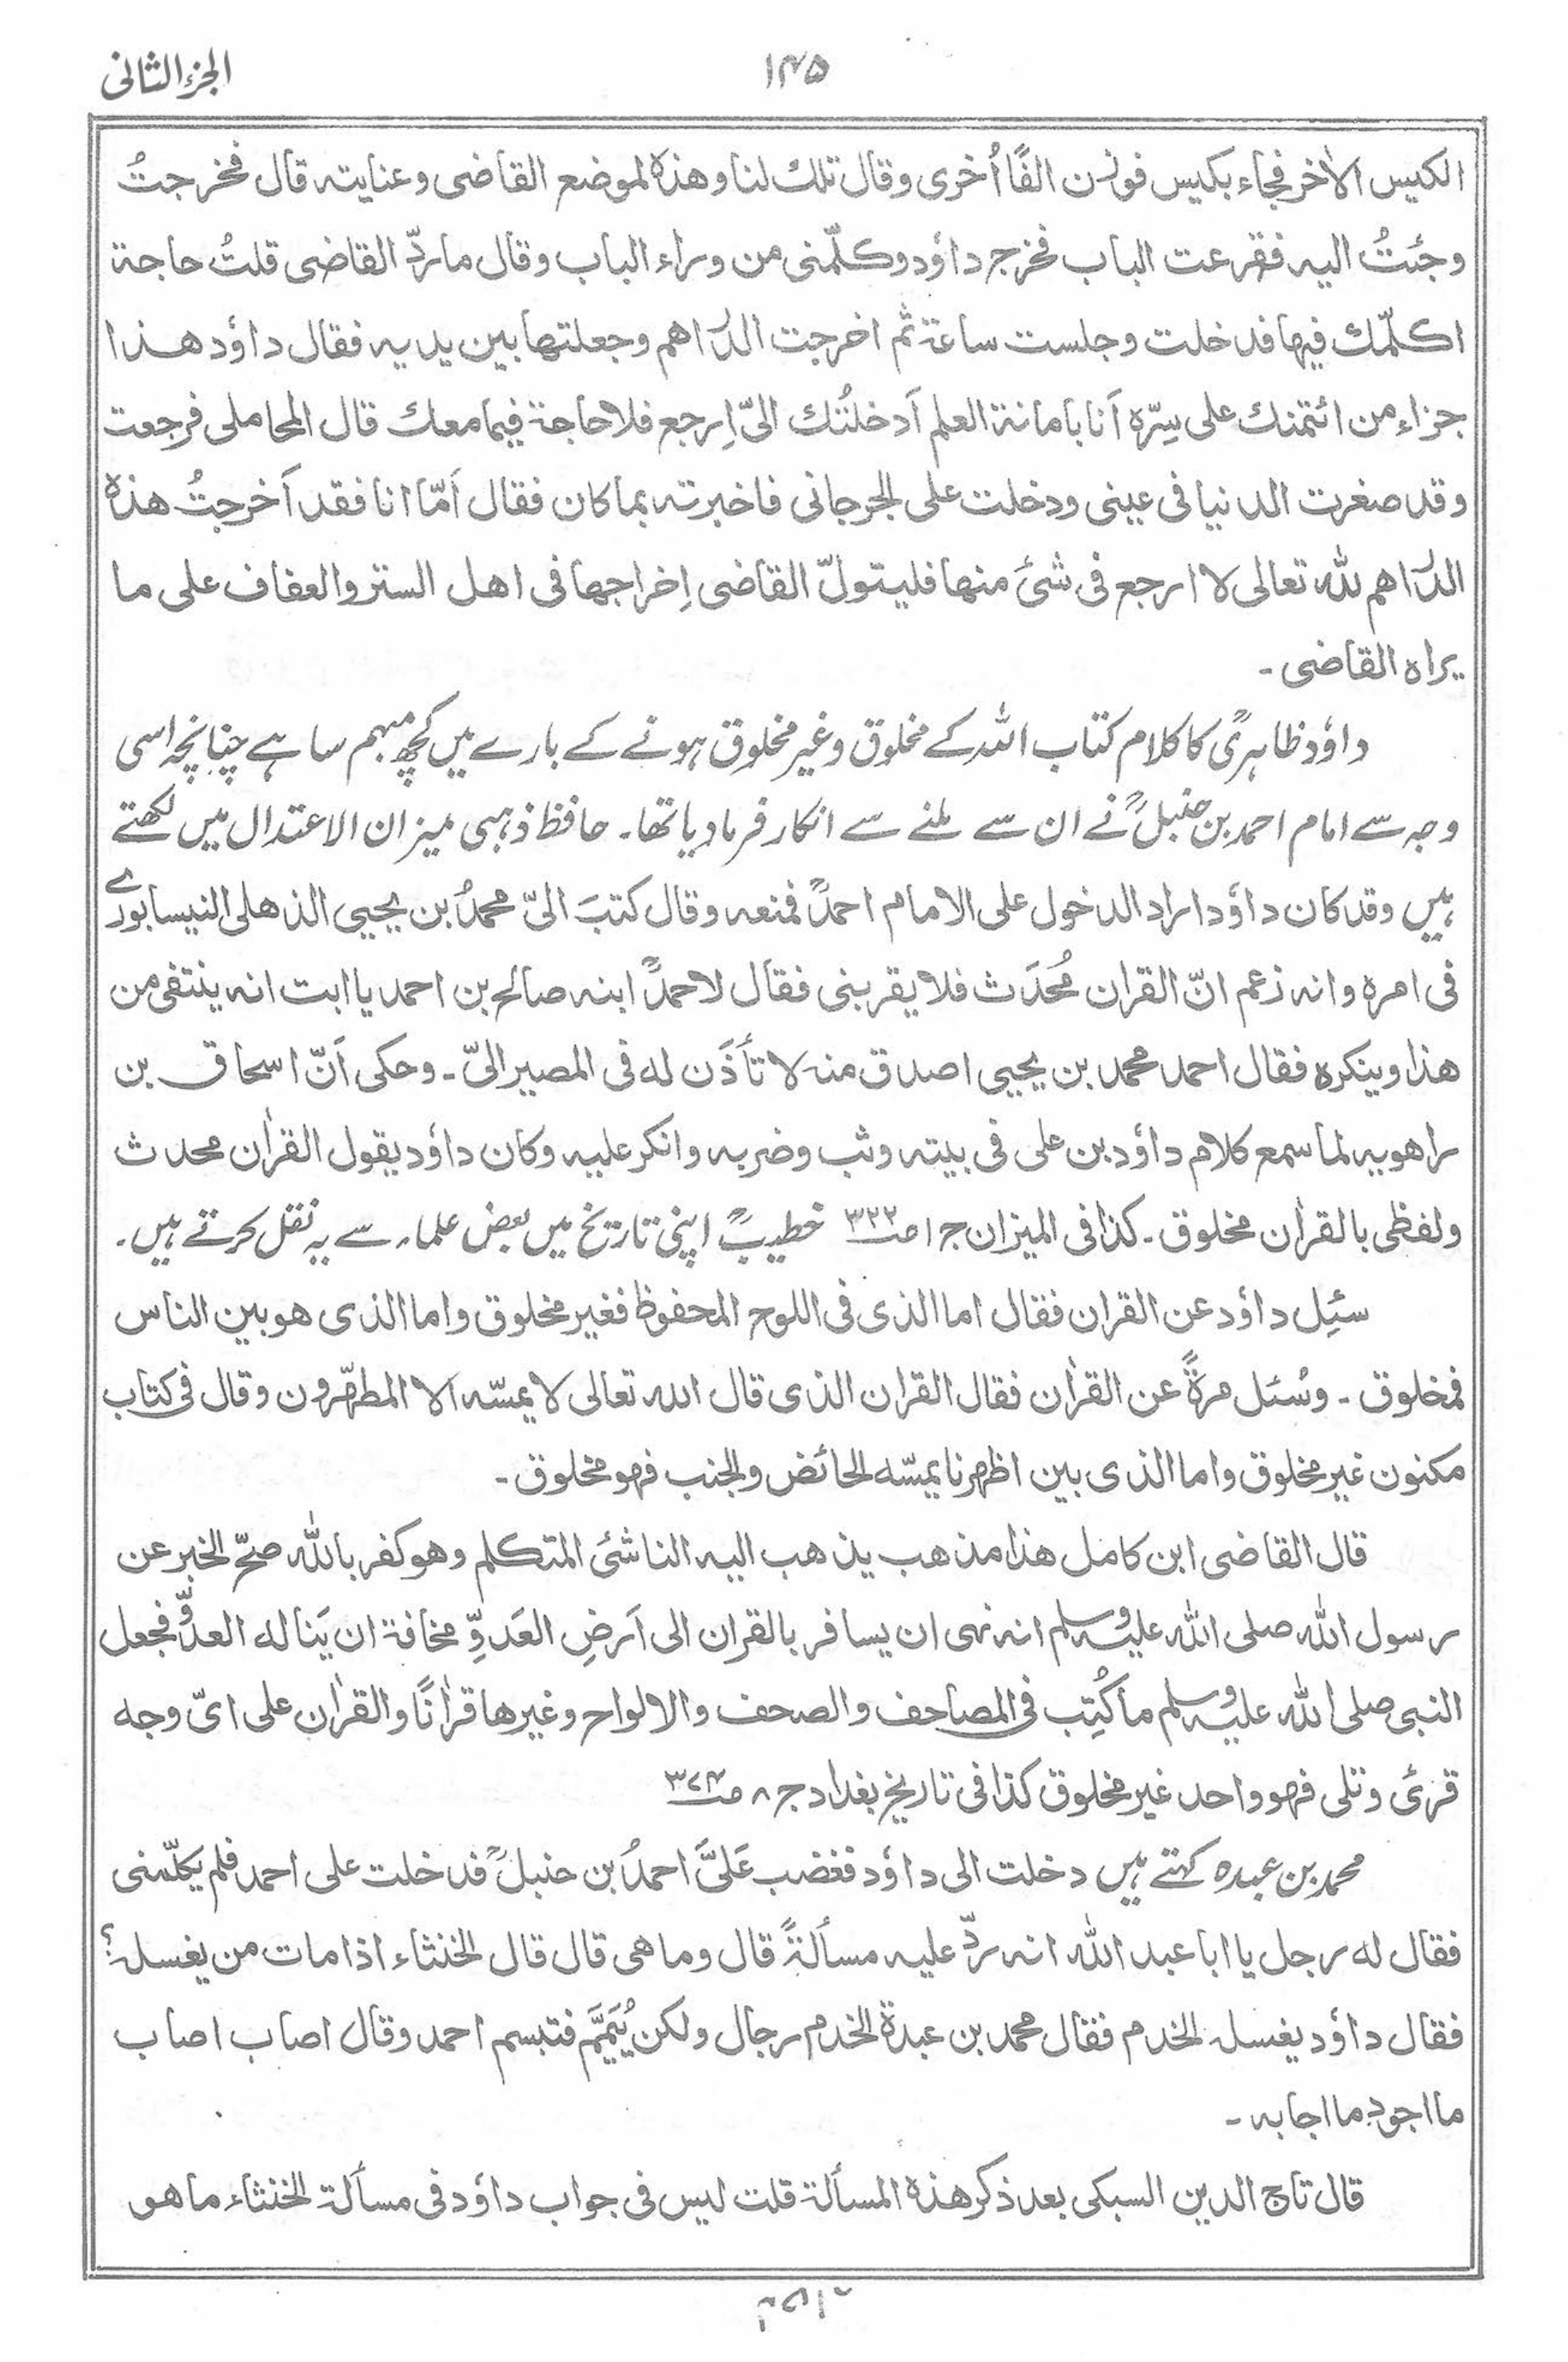 الجزء الثانی
۱۴۵
الکیس الاٰخر فجاء بکیس فوزن الفًا اُخری وقال تلك لنا وهذه لموضع القاضی وعنایته قال فخرجتُ
وجئتُ الیه فقرعت الباب فخرج داؤد وکلّمنی من وراء الباب وقال ما ردّ القاضی قلتُ حاجة
اکلّمك فیها فدخلت وجلست ساعة ثم اخرجت الدَراهم وجعلتها بین یدیه فقال داؤد هذا
جزاء من ائتمنك علی سِرّہ اَنا بامانة العلم اَدخلتُك الیّ اِرجع فلا حاجة فیما معك قال المحاملی فرجعت
وقد صغرت الدنیا فی عینی ودخلت علی الجرجانی فاخبرته بما کان فقال اَمّا انا فقد اَخرجتُ هذہ
الدَراهم للّٰه تعالی لا ارجع فی شئ منها فلیتولّ القاضی اِخراجها فی اهل الستر والعفاف علی ما
یراہ القاضی ۔
داؤد ظاہریؒ کا کلام کتاب اللہ کے مخلوق وغیر مخلوق ہونے کے بارے میں کچھ مبہم سا ہے چنانچہ اسی
وجہ سے امام احمد بن حنبلؒ نے ان سے ملنے سے انکار فرما دیا تھا۔ حافظ ذہبی میزان الاعتدال میں لکھتے
ہیں وقد کان داؤد اراد الدخول علی الامام احمدؒ فمنعه وقال کتبَ الیّ محمدُ بن یحیی الذهلی النیسابوری
فی امرہ وانه زعم انّ القران مُحدَث فلا یقربنی فقال لاحمدؒ ابنه صالح بن احمد یا ابت انه ینتفی من
هذا وینکرہ فقال احمد محمد بن یحیی اصدق منه لا تأذَن له فی المصیر الیّ ۔ وحکی اَنّ اسحاق بن
راهویه لما سمع کلام داؤد بن علی فی بیته وثب وضربه وانکر علیه وکان داؤد یقول القراٰن محدث
ولفظی بالقراٰن مخلوق ۔ کذا فی المیزان ج ۱ ص۳۲۲ خطیبؒ اپنی تاریخ میں بعض علماء سے یہ نقل کرتے ہیں۔
سئِل داؤد عن القران فقال اما الذی فی اللوح المحفوظ فغیر مخلوق واما الذی هو بین الناس
فمخلوق ۔ وسُئل مرةً عن القراٰن فقال القران الذی قال الله تعالی لا یمسّه الا المطهّرون وقال فی کتاب
مکنون غیر مخلوق واما الذی بین اظهرنا یمسّه الحائض والجنب فهو مخلوق ۔
قال القاضی ابن کامل هذا مذهب یذهب الیه الناشئ المتکلم وهو کفر باللّٰه صحّ الخبر عن
رسول اللّٰه صلی اللّٰه علیه وسلم انه نهی ان یسافر بالقران الی اَرضِ العَدوِّ مخافة ان یَناله العدوُّ فجعل
النبی صلی اللّٰه علیه وسلم ما کُتِب فی المصاحف والصحف والالواح وغیرها قراٰنًا والقراٰن علی ایّ وجه
قرئ وتلی فهو واحد غیر مخلوق کذا فی تاریخ بغداد ج ۸ ص۳۷۴
محمد بن عبدہ کہتے ہیں دخلت الی داؤد فغضب عَلیَّ احمدُ بن حنبلؒ فدخلت علی احمد فلم یکلّمنی
فقال له رجل یا ابا عبد اللّٰه انه ردّ علیه مسألةً قال وما هی قال قال الخنثاء اذا مات من یغسله؟
فقال داؤد یغسله الخدم فقال محمد بن عبدة الخدم رجال ولکن یُیَمَّم فتبسم احمد وقال اصاب اصاب
ما اجود ما اجابه ۔
قال تاج الدین السبکی بعد ذکر هذہ المسألة قلت لیس فی جواب داؤد فی مسألة الخنثاء ما هو